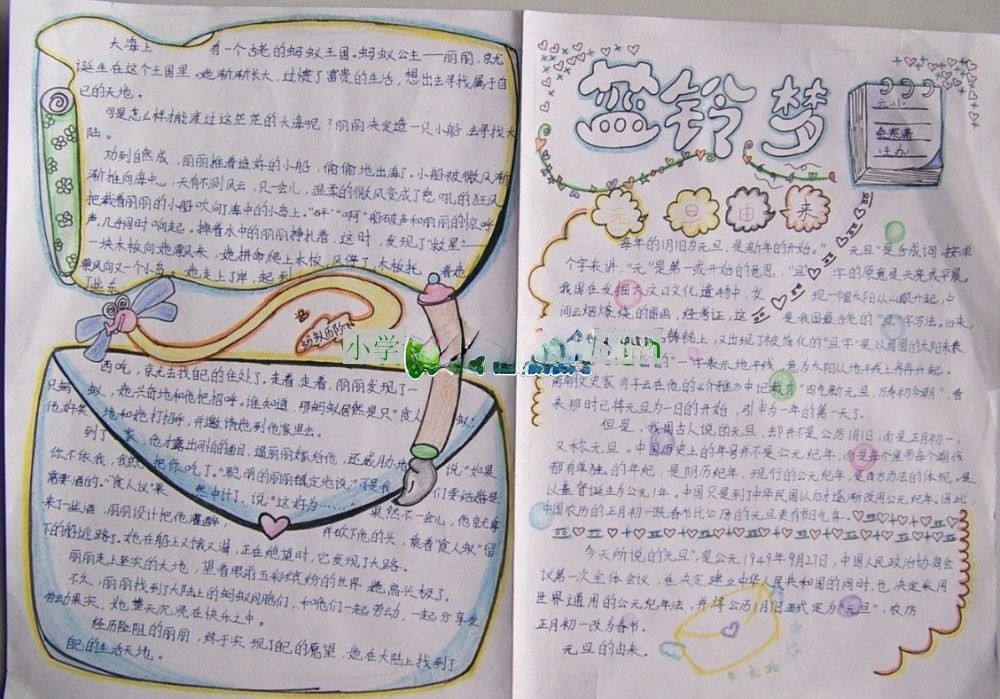 大海上 有一个古老的蚂蚁王国。蚂蚁公主——丽丽,就
诞生在这个王国里。她渐渐长大,过惯了富贵的生活,想出去寻找属于自
己的天地。
可是怎么样才能渡过这茫茫的大海呢?丽丽决定造一只小船,去寻找大
陆。
功到自然成,丽丽推着造好的小船,偷偷地出海了。小船被微风渐
渐推向海中心,天有不测风云,只一会儿,温柔的微风变成了怒吼的狂风
把载着丽丽的小船吹向了海中的小岛上。“砰”“啊”船破声和丽丽的惊呼
声,几乎同时响起。掉者水中的丽丽挣扎着,这时,发现了“救星”——
一块木板向她飘来,她拼命爬上木板,风停了,木板托 着她
乘风向又一个小岛。她走上了岸,起到
了出东
蚂蚁历险
小学
西吃,就先去找自己的住处了。走着,走着,丽丽发现了一
只蚂 蚁,她兴奇地和他把招呼。谁知道,那蚂蚁居然是只“食人 蚁!
他好笑 地和她打招呼,并邀请她到他家里去。
到了 家,他才露出可怕的面目,逼丽丽嫁给他,还威胁地 说:“如果
你不依我,我就 把你吃了。”聪明的丽丽镇定地说:“可是我 们要结婚是
需要酒的。”“食人蚁”果 然中计了,说:“这好办……” 果然不一会儿,他就拿
来了一些酒,丽丽设计把他灌醉, 并砍下他的头,乘着“食人蚁”留
下的船逃路了。她在船上又饿又渴,正在绝望时,它发现了大路。
丽丽走上坚实的大地,望着眼前五彩缤纷的世界,她高头极了。
不久,丽丽找到了大陆上的蚂蚁同胞们,和他们一起劳动,一起分享受
劳动果实,她整天沉浸在快乐之中。
经历险阻的丽丽,终于实现了自己的愿望,她在大陆上找到了
自己的生活天地。
蓝铃梦
云小
主办
元旦由来
每年的1月1日为元旦,是新年的开始。“ 元旦”是合成词,按单
个字来讲,“元”是第一或开始的意思,“旦” 字的原意是天亮或早晨。
我国在发掘大汶口文化遗物中,发 现一幅太阳从山巅升起,中
间云烟燎绕的图画,经考证,这 是我国最古老的“旦”字写法。后来
铸铭上,又出现了被简化的“旦字”是以圆圆的太阳来表
一”字表示地平线,意为太阳从地平线上冉冉升起。
南朝文史家肖子云在他的《介雅》中记载为“四气新元旦,万寿初今朝”,看
来那时已将元旦为一日的开始,引申为一年的第一天了。
但是,我国古人说的元旦,却并不是公历1月1日,而是正月初一,
又称元旦。中国历史上的年号并不是公元纪年,而是每个皇帝每个朝代
都有单独的年纪,是阴历纪年,现行的公元纪年,是西方历法的体现,是
以基督诞生为公元1年。中国只是到了中华民国以后才逐渐改用公元纪年。因此,
中国农历的正月初一既春节比公历的元旦更有节日气氛。
今天所说的“元旦”,是公元1949年9月27日,中国人民政治协商会
议第一次全体会议,在决定建立中华人民共和国的同时,也决定采用
世界通用的公元纪年法,并将公历1月1日正式定为“元旦”,农历
正月初一改为春节。
元旦的由来。